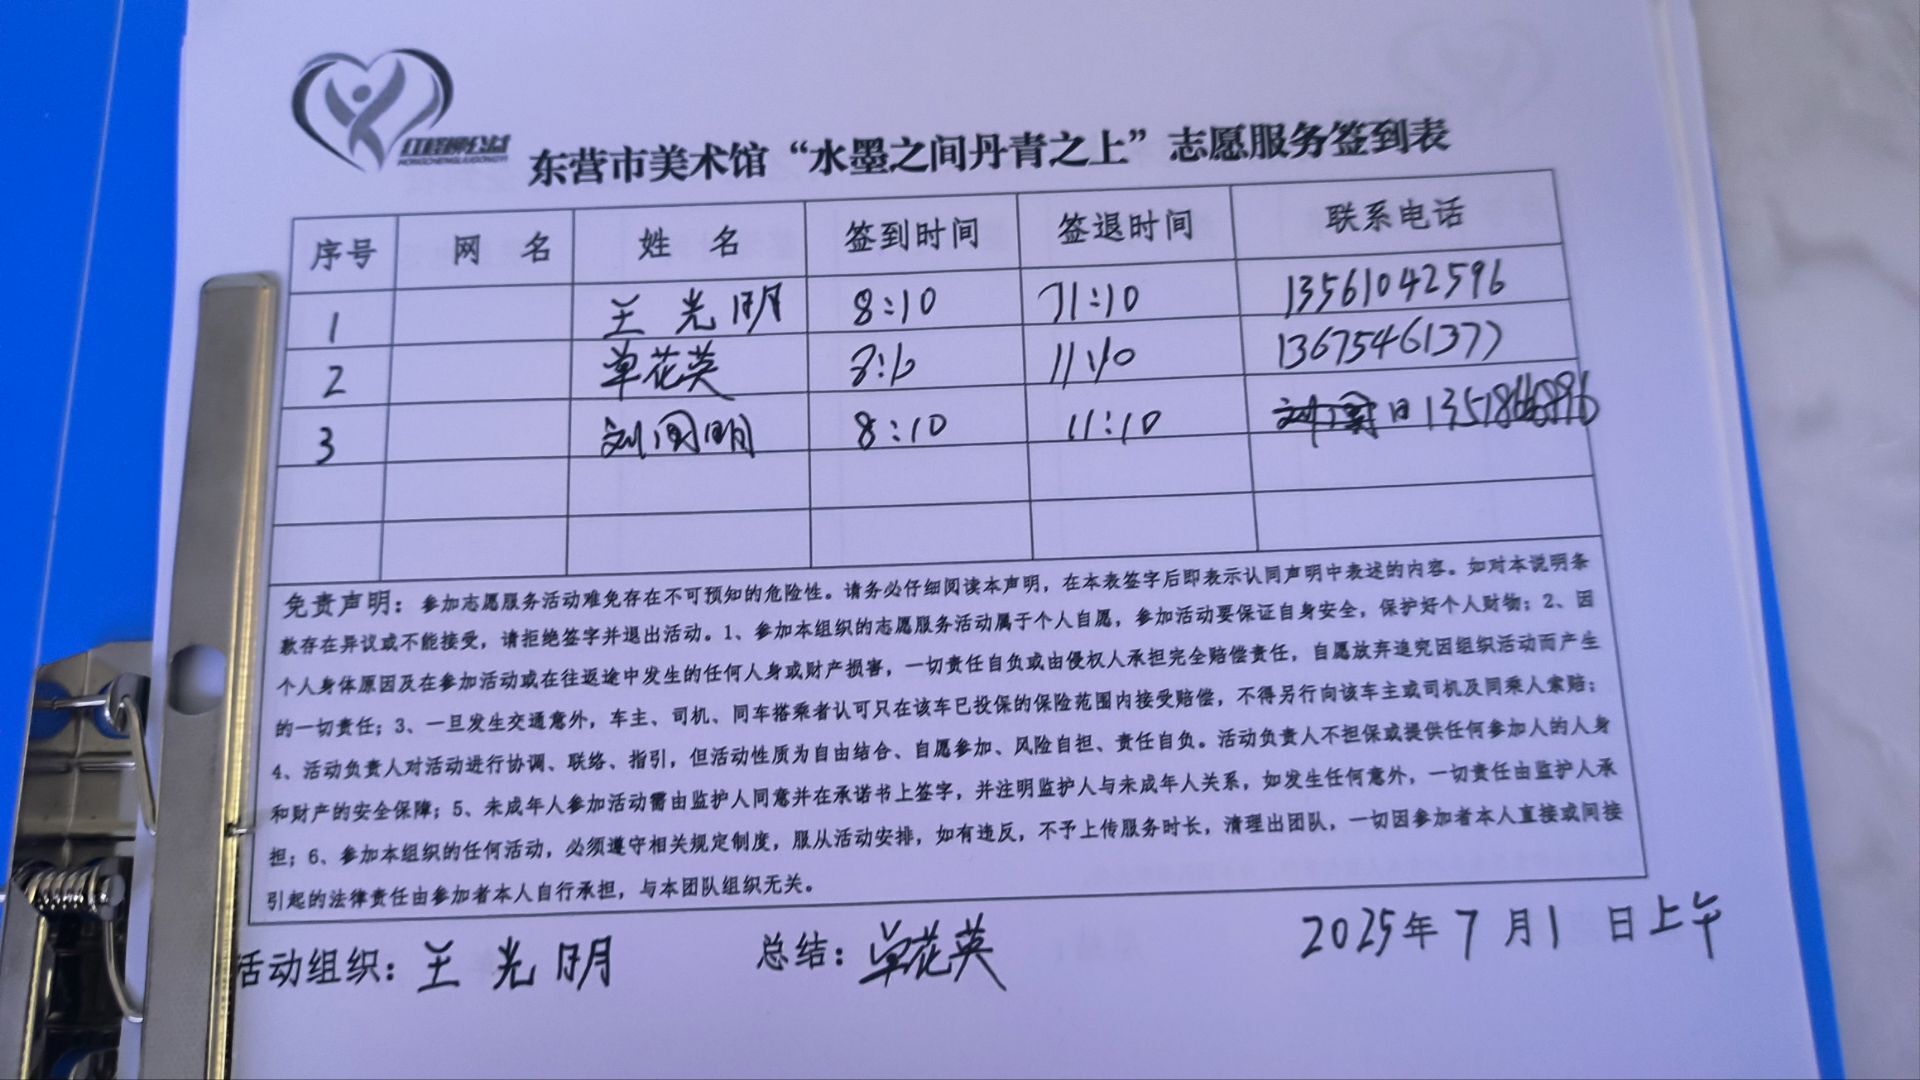 红橙柳公益
HONGCHENGLIUGONGYI
东营市美术馆“水墨之间丹青之上”志愿服务签到表
序号 网 名 姓 名 签到时间 签退时间 联系电话
1 王光明 8:10 11:10 13561042596
2 单花英 8:10 11:10 13675461377
3 刘国明 8:10 11:10
免责声明：参加志愿服务活动难免存在不可预知的危险性。请务必仔细阅读本声明，在本表签字后即表示认同声明中表述的内容。如对本说明条
款存在异议或不能接受，请拒绝签字并退出活动。1、参加本组织的志愿服务活动属于个人自愿，参加活动要保证自身安全，保护好个人财物；2、因
个人身体原因及在参加活动或在往返途中发生的任何人身或财产损害，一切责任自负或由侵权人承担完全赔偿责任，自愿放弃追究因组织活动而产生
的一切责任；3、一旦发生交通意外，车主、司机、同车搭乘者认可只在该车已投保的保险范围内接受赔偿，不得另行向该车主或司机及同乘人索赔；
4、活动负责人对活动进行协调、联络、指引，但活动性质为自由结合、自愿参加、风险自担、责任自负。活动负责人不担保或提供任何参加人的人身
和财产的安全保障；5、未成年人参加活动需由监护人同意并在承诺书上签字，并注明监护人与未成年人关系，如发生任何意外，一切责任由监护人承
担；6、参加本组织的任何活动，必须遵守相关规定制度，服从活动安排，如有违反，不予上传服务时长，清理出团队，一切因参加者本人直接或间接
引起的法律责任由参加者本人自行承担，与本团队组织无关。
活动组织：王光明 总结：单花英 2025年7月1日上午